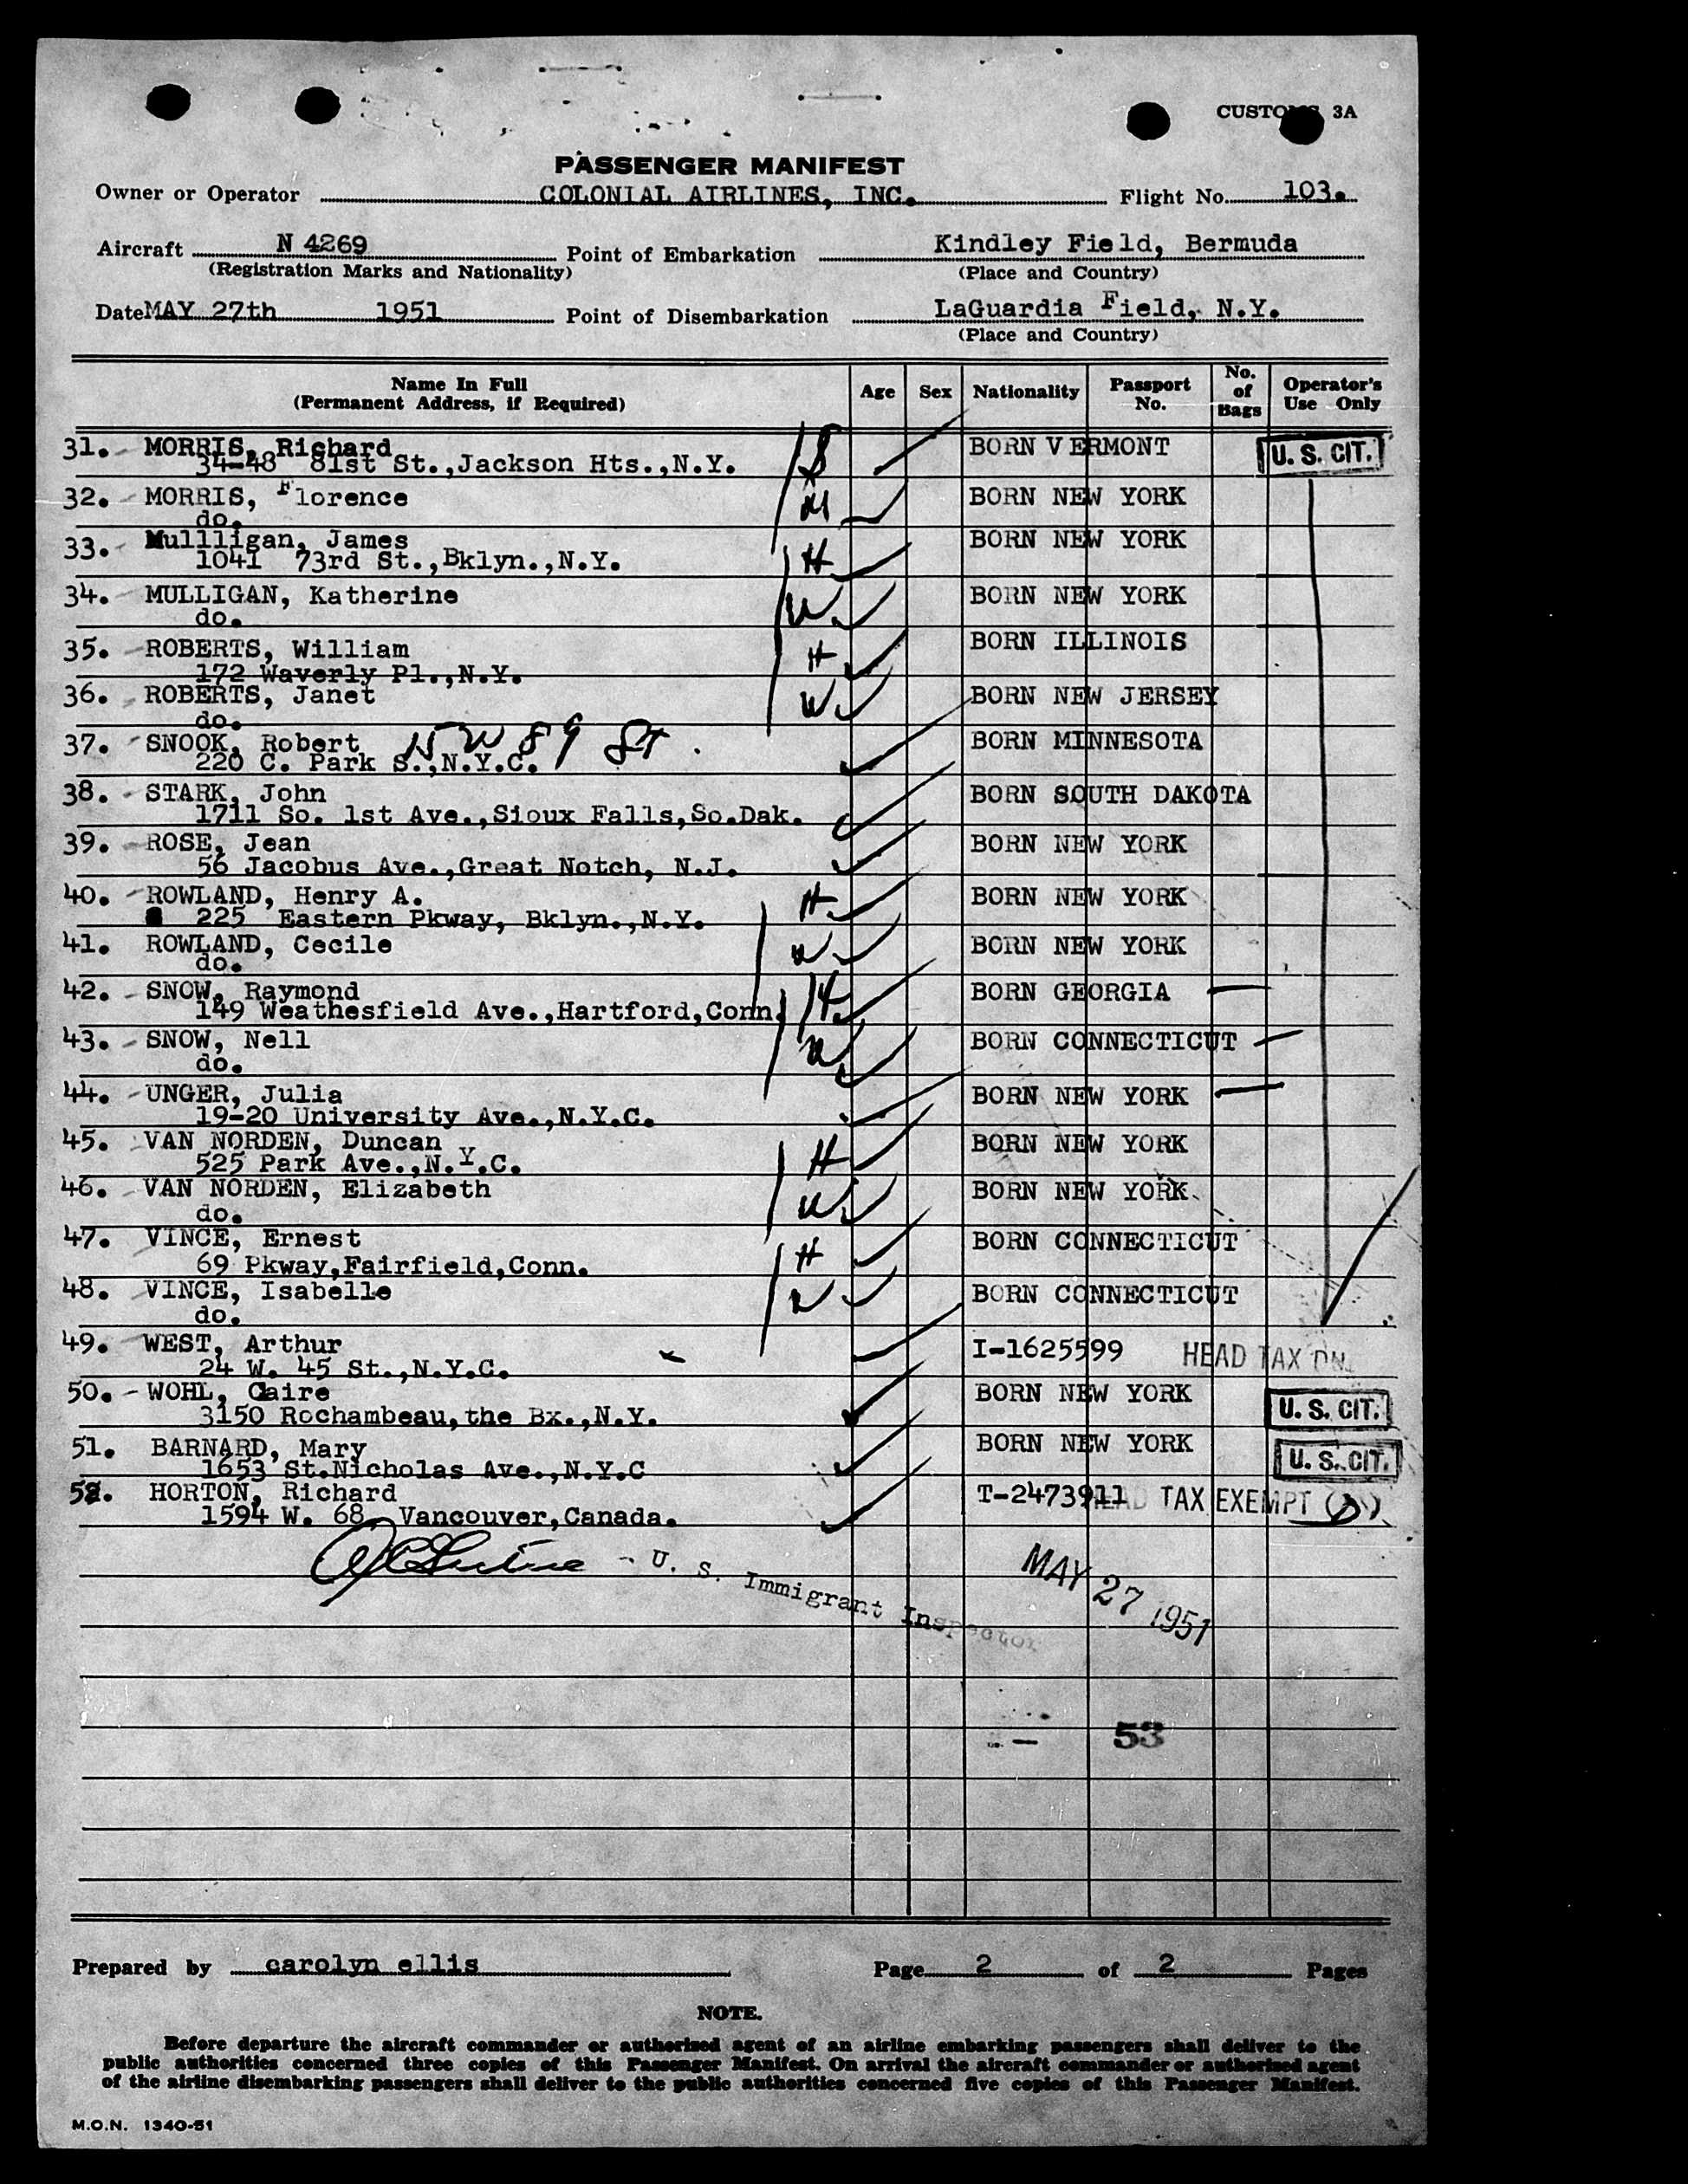 CUSTOMS 3A
PASSENGER MANIFEST
Owner or Operator COLONIAL AIRLINES, INC. Flight No. 103.
Aircraft N 4269 Point of Embarkation Kindley Field, Bermuda
(Registration Marks and Nationality) (Place and Country)
Date MAY 27th 1951 Point of Disembarkation LaGuardia Field, N.Y.
(Place and Country)
Name In Full (Permanent Address, if Required) Age Sex Nationality Passport No. No. of Bags Operator's Use Only
31. MORRIS, Richard S BORN VERMONT U. S. CIT.
34-48 81st St.,Jackson Hts.,N.Y.
32. MORRIS, Florence M BORN NEW YORK
do.
33. Mullligan, James H BORN NEW YORK
1041 73rd St.,Bklyn.,N.Y.
34. MULLIGAN, Katherine W BORN NEW YORK
do.
35. ROBERTS, William H BORN ILLINOIS
172 Waverly Pl.,N.Y.
36. ROBERTS, Janet W BORN NEW JERSEY
do.
37. SNOOK, Robert 15 W 89 St. BORN MINNESOTA
220 C. Park S.,N.Y.C.
38. STARK, John BORN SOUTH DAKOTA
1711 So. 1st Ave.,Sioux Falls,So.Dak.
39. ROSE, Jean BORN NEW YORK
56 Jacobus Ave.,Great Notch, N.J.
40. ROWLAND, Henry A. H BORN NEW YORK
225 Eastern Pkway, Bklyn.,N.Y.
41. ROWLAND, Cecile W BORN NEW YORK
do.
42. SNOW, Raymond H BORN GEORGIA
149 Weathesfield Ave.,Hartford,Conn.
43. SNOW, Nell W BORN CONNECTICUT
do.
44. UNGER, Julia BORN NEW YORK
19-20 University Ave.,N.Y.C.
45. VAN NORDEN, Duncan H BORN NEW YORK
525 Park Ave.,N.Y.C.
46. VAN NORDEN, Elizabeth W BORN NEW YORK
do.
47. VINCE, Ernest H BORN CONNECTICUT
69 Pkway,Fairfield,Conn.
48. VINCE, Isabelle W BORN CONNECTICUT
do.
49. WEST, Arthur I-1625599 HEAD TAX
24 W. 45 St.,N.Y.C.
50. WOHL, Caire BORN NEW YORK U. S. CIT.
3150 Rochambeau,the Bx.,N.Y.
51. BARNARD, Mary BORN NEW YORK U. S. CIT.
1653 St.Nicholas Ave.,N.Y.C
52. HORTON, Richard T-2473911 HEAD TAX EXEMPT
1594 W. 68, Vancouver,Canada.
U. S. Immigrant Inspector MAY 27 1951
53
Prepared by carolyn ellis Page 2 of 2 Pages
NOTE.
Before departure the aircraft commander or authorised agent of an airline embarking passengers shall deliver to the
public authorities concerned three copies of this Passenger Manifest. On arrival the aircraft commander or authorised agent
of the airline disembarking passengers shall deliver to the public authorities concerned five copies of this Passenger Manifest.
M.O.N. 1340-51